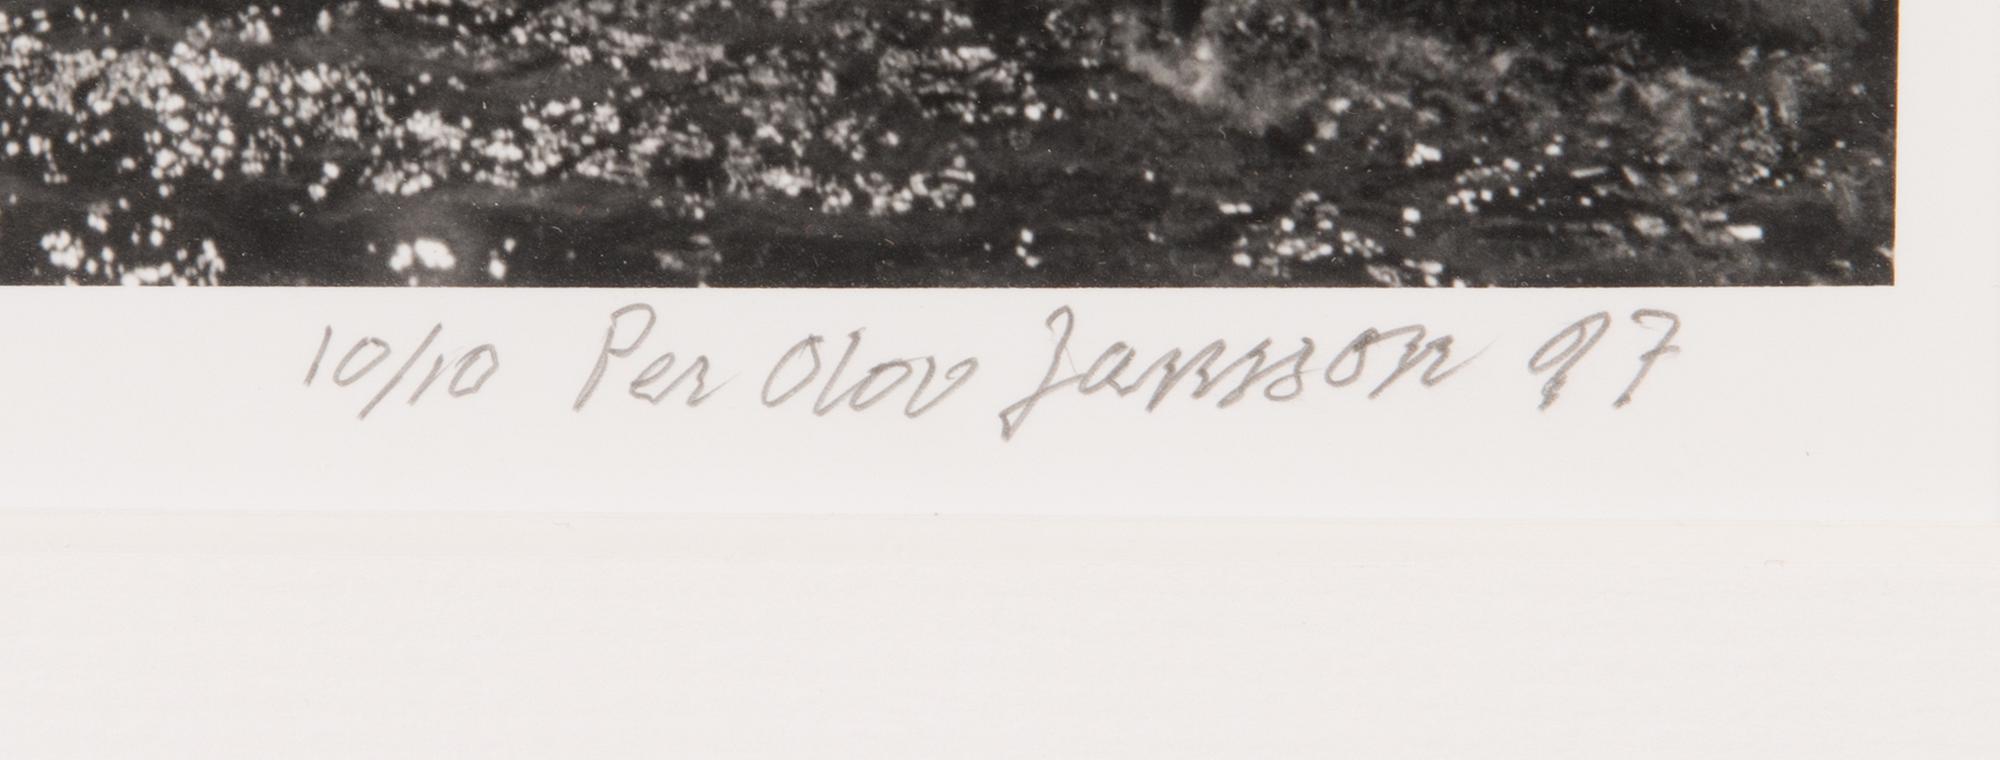 10/10 Per Olov Jansson 97